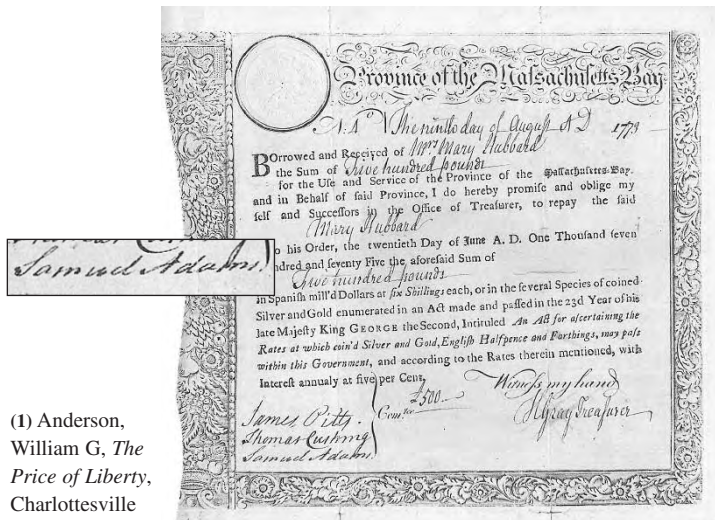 Province of the Massachusetts Bay
The ninth day of August A D 1773
Borrowed and Received of Mrs Mary Hubbard
the Sum of Five hundred pounds
for the Use and Service of the Province of the Massachusetts-Bay.
and in Behalf of said Province, I do hereby promise and oblige my
self and Successors in the Office of Treasurer, to repay the said
Mary Hubbard
o his Order, the twentieth Day of June A. D. One Thousand seven
ndred and seventy Five the aforesaid Sum of
Five hundred pounds
in Spanish mill'd Dollars at six Shillings each, or in the several Species of coined
Silver and Gold enumerated in an Act made and passed in the 23d Year of his
late Majesty King GEORGE the Second, Intituled An Act for ascertaining the
Rates at which coin'd Silver and Gold, English Halfpence and Farthings, may pass
within this Government, and according to the Rates therein mentioned, with
Interest annualy at five per Cent,
£500
Witness my hand
HGray Treasurer
James Pitts
Thomas Cushing
Samuel Adams.
Comtee
Samuel Adams
(1) Anderson,
William G, The
Price of Liberty,
Charlottesville